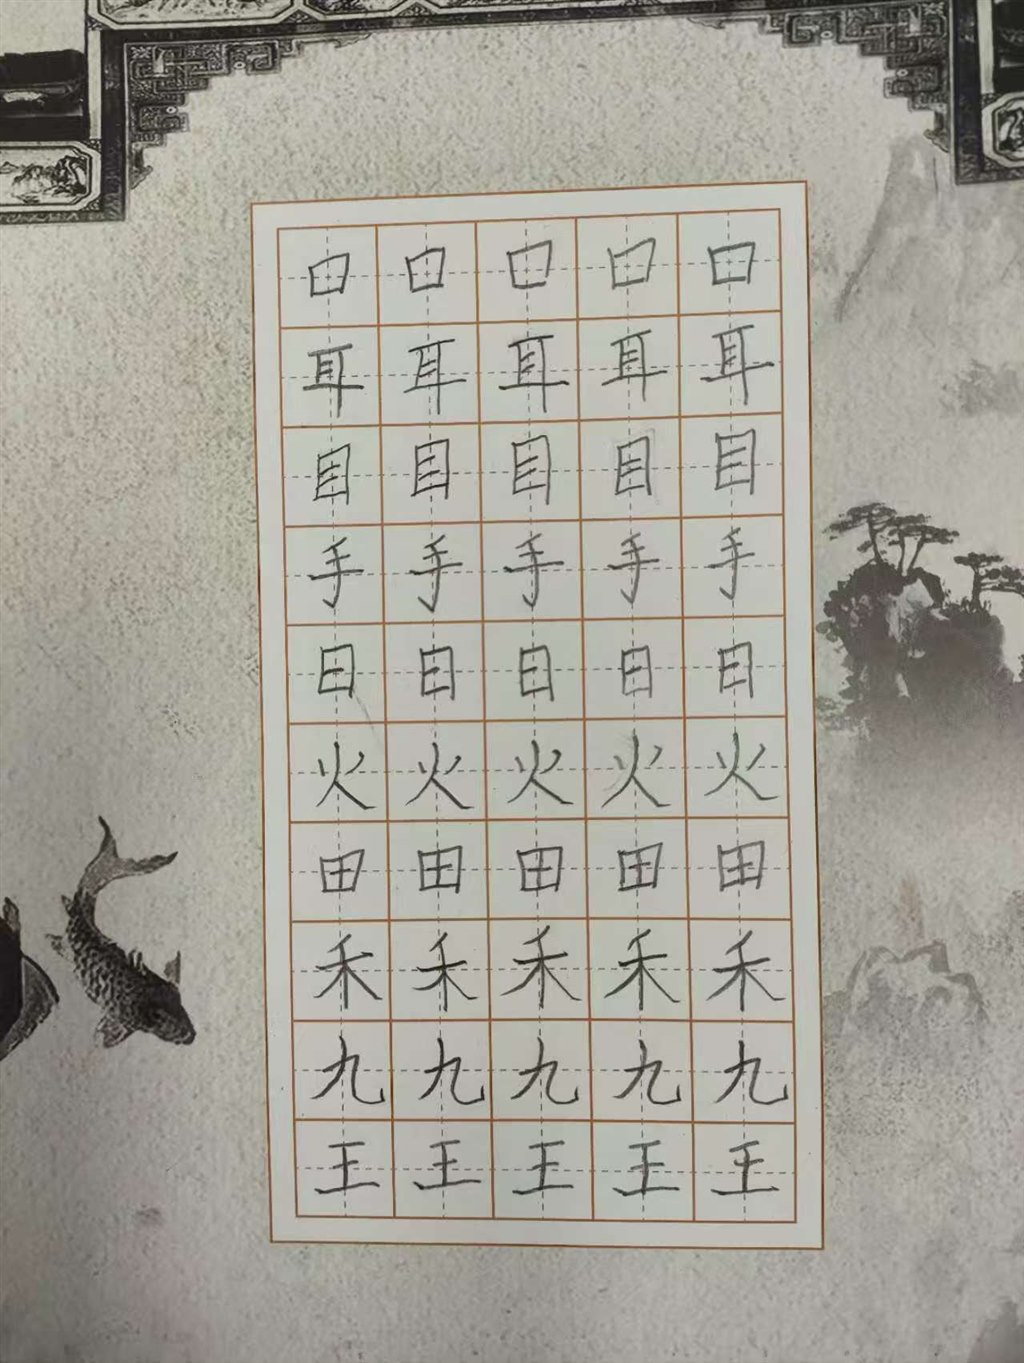 口口口口口
耳耳耳耳耳
目目目目目
手手手手手
日日日日日
火火火火火
田田田田田
禾禾禾禾禾
九九九九九
王王王王王